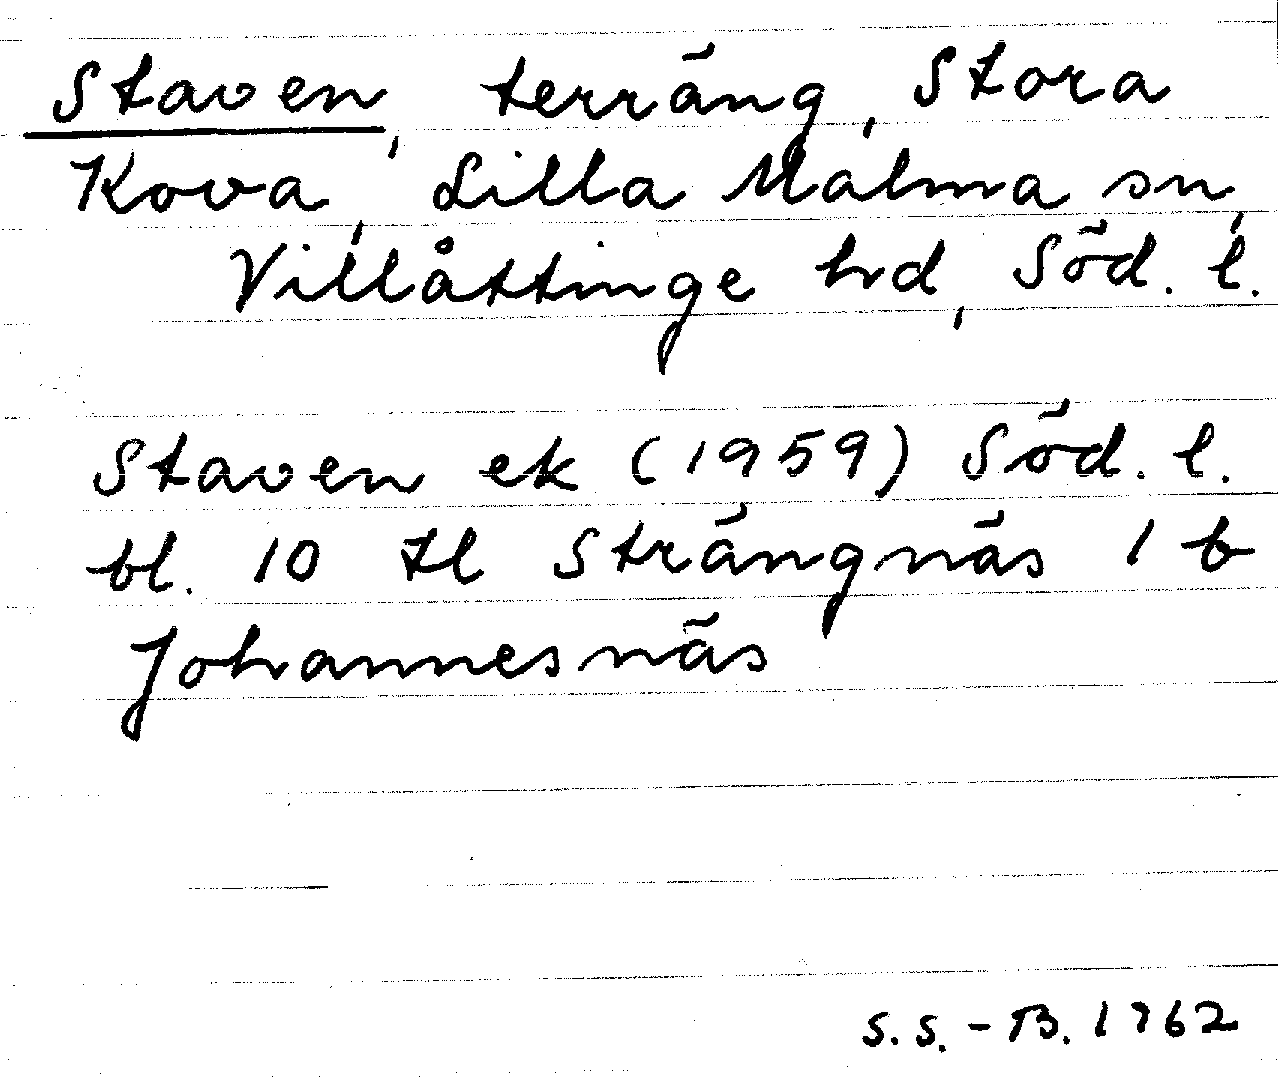 Staven, terräng, Stora
Kova, Lilla Malma sn,
Villåttinge hd, Söd. l.
Staven ek (1959) Söd. l.
bl. 10 tl Strängnäs 1 b
Johannesnäs
S.S.-B. 1962